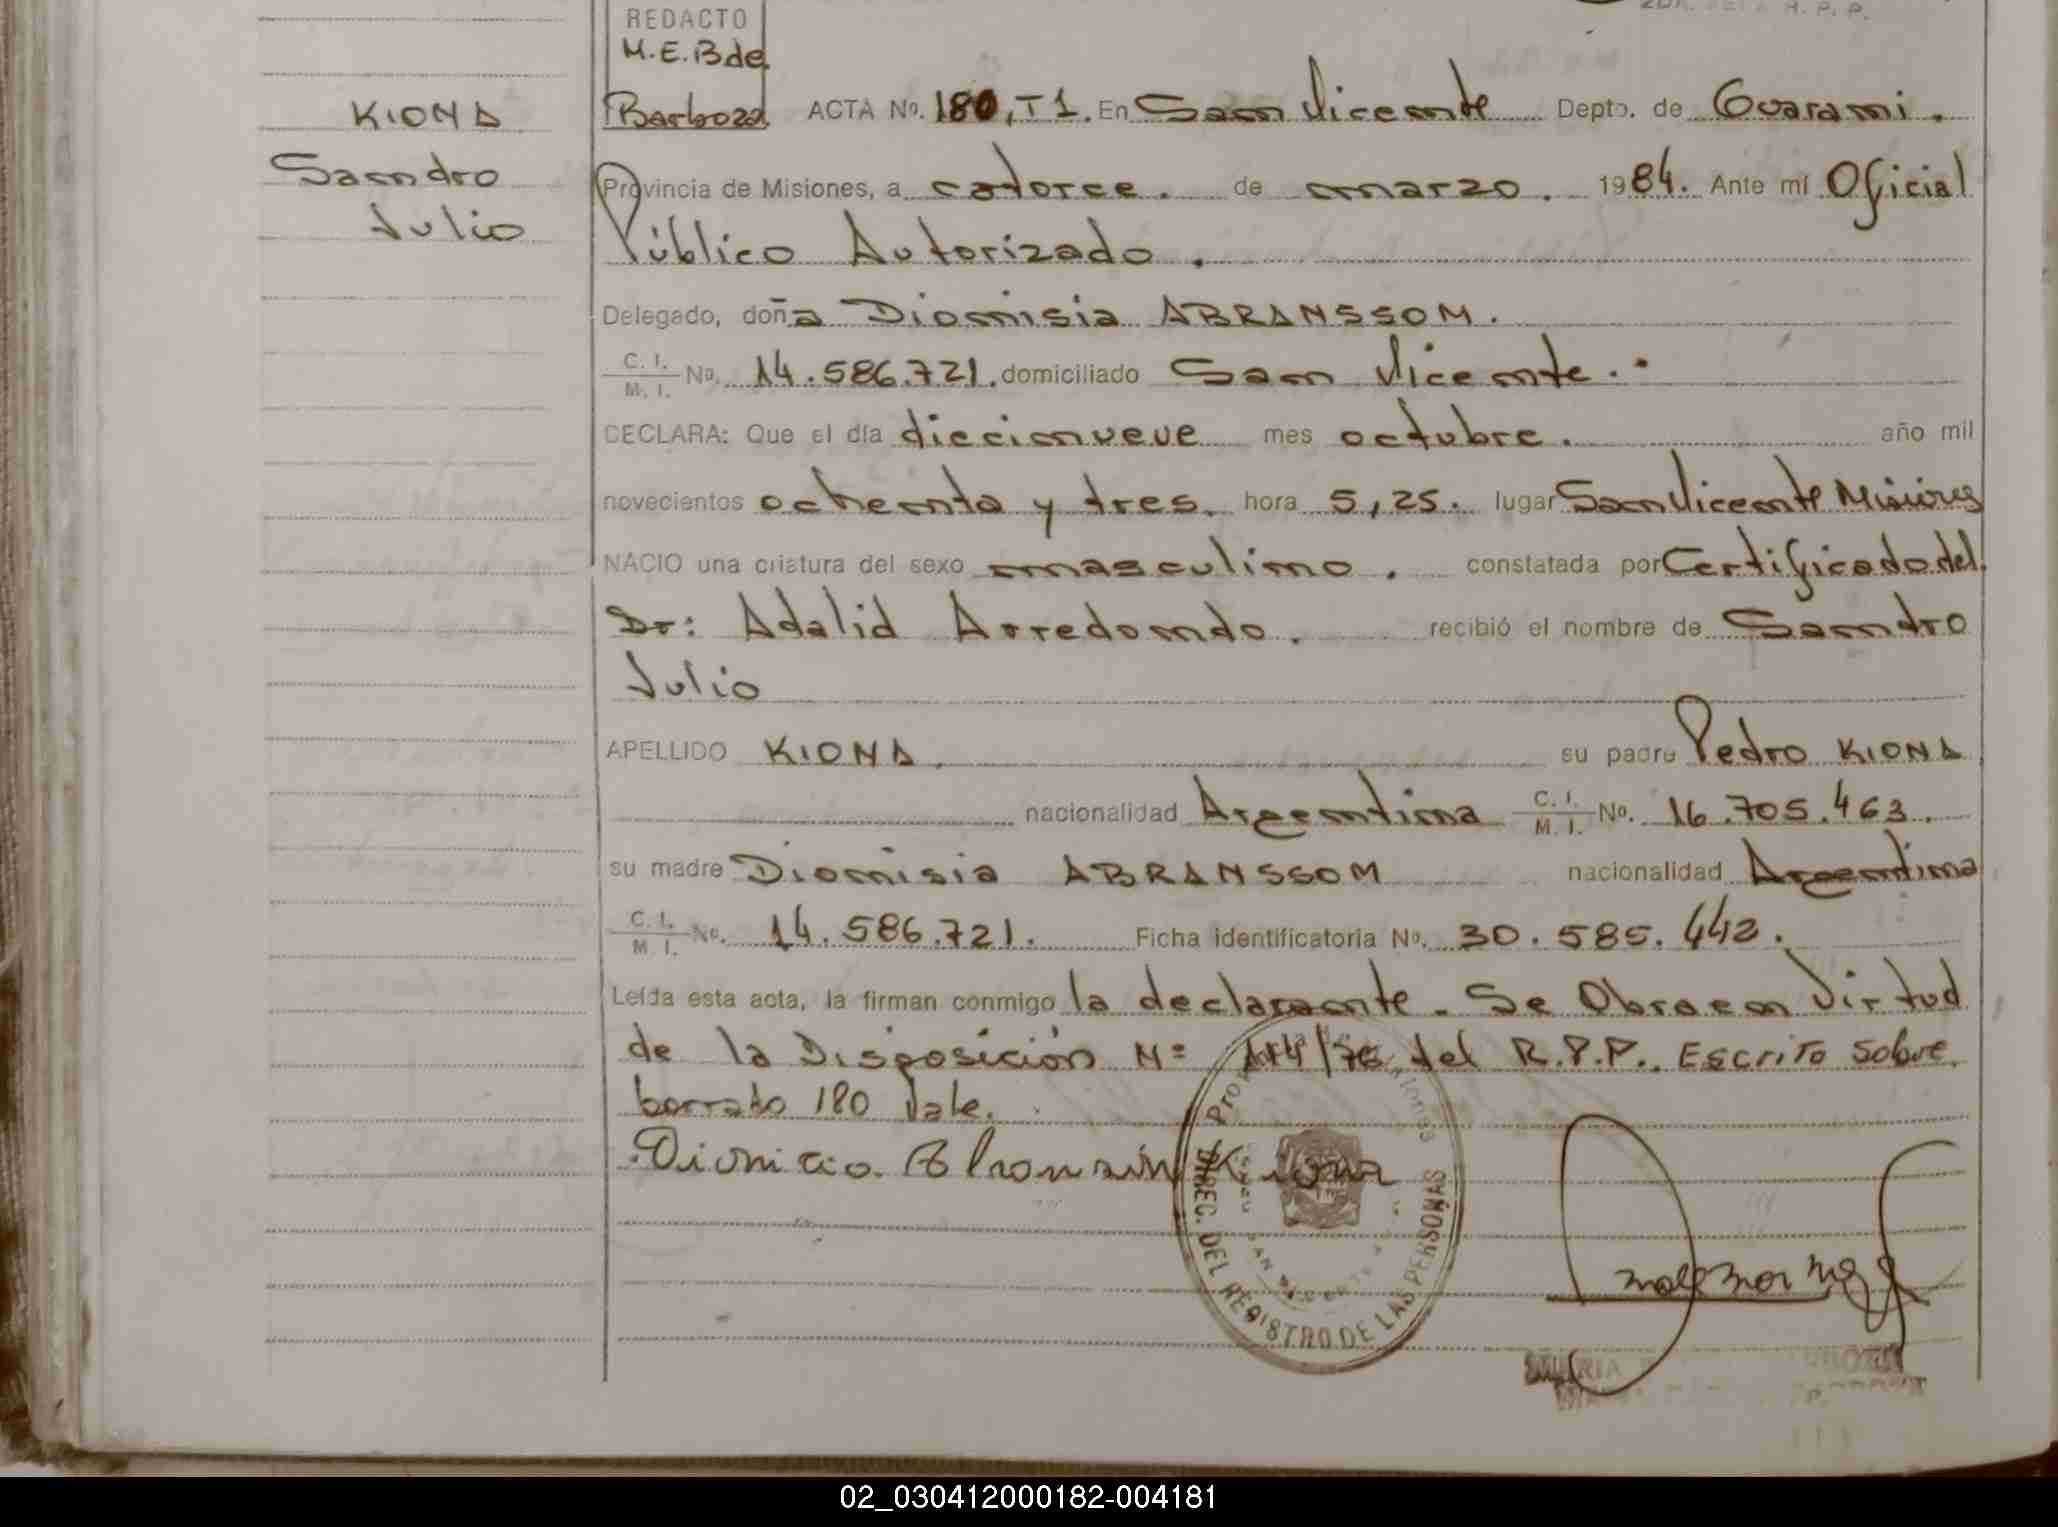 REDACTO
M.E.B de
Barboza
KIONA
Sandro
Julio
ACTA No. 180, T1. En San Vicente Depto. de Guarani.
Provincia de Misiones, a catorce. de marzo. 1984. Ante mí Oficial
Público Autorizado.
Delegado, doña Dionisia ABRANSSON.
C. I. / M. I. No. 14.586.721. domiciliado San Vicente.
DECLARA: Que el día diecinueve mes octubre. año mil
novecientos ochenta y tres. hora 5,25. lugar San Vicente Misiones
NACIO una criatura del sexo masculino. constatada por Certificado del
Dr: Adalid Arredondo. recibió el nombre de Sandro
Julio
APELLIDO KIONA. su padre Pedro KIONA
nacionalidad Argentina C. I. / M. I. No. 16.705.463.
su madre Dionisia ABRANSSON nacionalidad Argentina
C. I. / M. I. No. 14.586.721. Ficha identificatoria No. 30.585.442.
Leída esta acta, la firman conmigo la declarante. Se Obra en Virtud
de la Disposición Nº 114/76 del R.P.P.. Escrito sobre
borrado 180 Vale.
Kiona
DIREC. DEL REGISTRO DE LAS PERSONAS
02_030412000182-004181